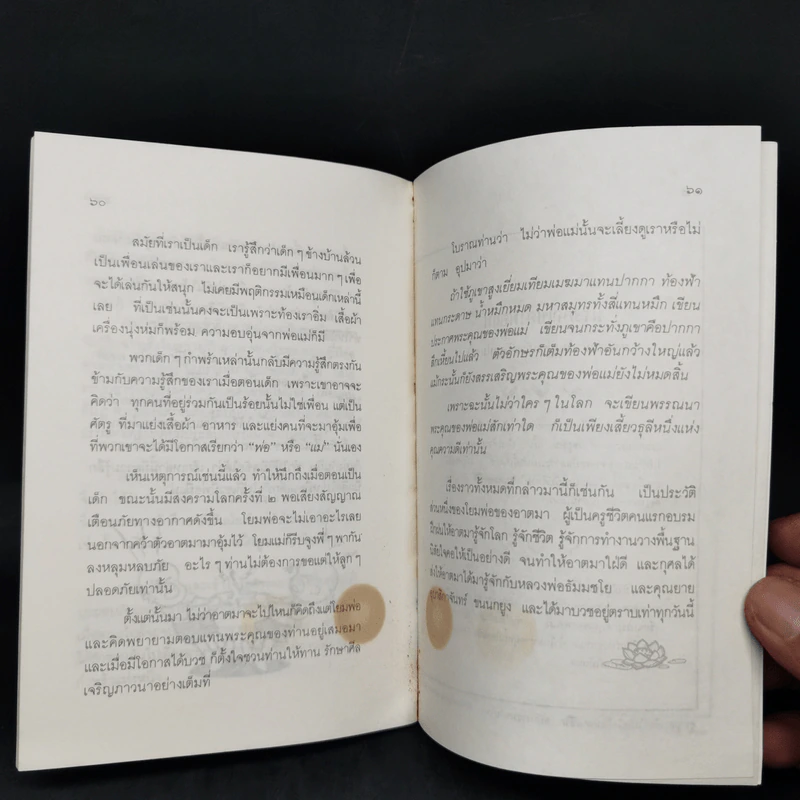 ๖๐
สมัยที่เราเป็นเด็ก เรารู้สึกว่าเด็ก ๆ ข้างบ้านล้วน
เป็นเพื่อนเล่นของเราและเราก็อยากมีเพื่อนมาก ๆ เพื่อ
จะได้เล่นกันให้สนุก ไม่เคยมีพฤติกรรมเหมือนเด็กเหล่านี้
เลย ที่เป็นเช่นนั้นคงจะเป็นเพราะท้องเราอิ่ม เสื้อผ้า
เครื่องนุ่งห่มก็พร้อม ความอบอุ่นจากพ่อแม่ก็มี
พวกเด็ก ๆ กำพร้าเหล่านั้นกลับมีความรู้สึกตรงกัน
ข้ามกับความรู้สึกของเราเมื่อตอนเด็ก เพราะเขาอาจจะ
คิดว่า ทุกคนที่อยู่ร่วมกันเป็นร้อยนั้นไม่ใช่เพื่อน แต่เป็น
ศัตรู ที่มาแย่งเสื้อผ้า อาหาร และแย่งคนที่จะมาอุ้มเพื่อ
ที่พวกเขาจะได้มีโอกาสเรียกว่า "พ่อ" หรือ "แม่" นั่นเอง
เห็นเหตุการณ์เช่นนี้แล้ว ทำให้นึกถึงเมื่อตอนเป็น
เด็ก ขณะนั้นมีสงครามโลกครั้งที่ ๒ พอเสียงสัญญาณ
เตือนภัยทางอากาศดังขึ้น โยมพ่อจะไม่เอาอะไรเลย
นอกจากคว้าตัวอาตมามาอุ้มไว้ โยมแม่ก็รีบจูงพี่ ๆ พากัน
ลงหลุมหลบภัย อะไร ๆ ท่านไม่ต้องการขอแต่ให้ลูก ๆ
ปลอดภัยเท่านั้น
ตั้งแต่นั้นมา ไม่ว่าอาตมาจะไปไหนก็คิดถึงแต่โยมพ่อ
และคิดพยายามตอบแทนพระคุณของท่านอยู่เสมอมา
และเมื่อมีโอกาสได้บวช ก็ตั้งใจชวนท่านให้ทาน รักษาศีล
เจริญภาวนาอย่างเต็มที่
๖๑
โบราณท่านว่า ไม่ว่าพ่อแม่นั้นจะเลี้ยงดูเราหรือไม่
ก็ตาม อุปมาว่า
ถ้าใช้ภูเขาสูงเยี่ยมเทียมเมฆมาแทนปากกา ท้องฟ้า
แทนกระดาษ น้ำหมึกหมด มหาสมุทรทั้งสี่แทนหมึก เขียน
ประกาศพระคุณของพ่อแม่ เขียนจนกระทั่งภูเขาคือปากกา
สึกเหี้ยนไปแล้ว ตัวอักษรก็เต็มท้องฟ้าอันกว้างใหญ่แล้ว
แม้กระนั้นก็ยังสรรเสริญพระคุณของพ่อแม่ยังไม่หมดสิ้น
เพราะฉะนั้นไม่ว่าใคร ๆ ในโลก จะเขียนพรรณนา
พระคุณของพ่อแม่สักเท่าใด ก็เป็นเพียงเสี้ยวธุลีหนึ่งแห่ง
คุณความดีเท่านั้น
เรื่องราวทั้งหมดที่กล่าวมานี้ก็เช่นกัน เป็นประวัติ
ส่วนหนึ่งของโยมพ่อของอาตมา ผู้เป็นครูชีวิตคนแรกอบรม
ให้อาตมาได้รู้จักโลก รู้จักชีวิต รู้จักการทำงานวางพื้นฐาน
นิสัยใจคอให้เป็นอย่างดี จนทำให้อาตมาใฝ่ดี และกุศลได้
ให้อาตมาได้มารู้จักกับหลวงพ่อธัมมชโย และคุณยาย
อุบาสิกาจันทร์ ขนนกยูง และได้มาบวชอยู่ตราบเท่าทุกวันนี้